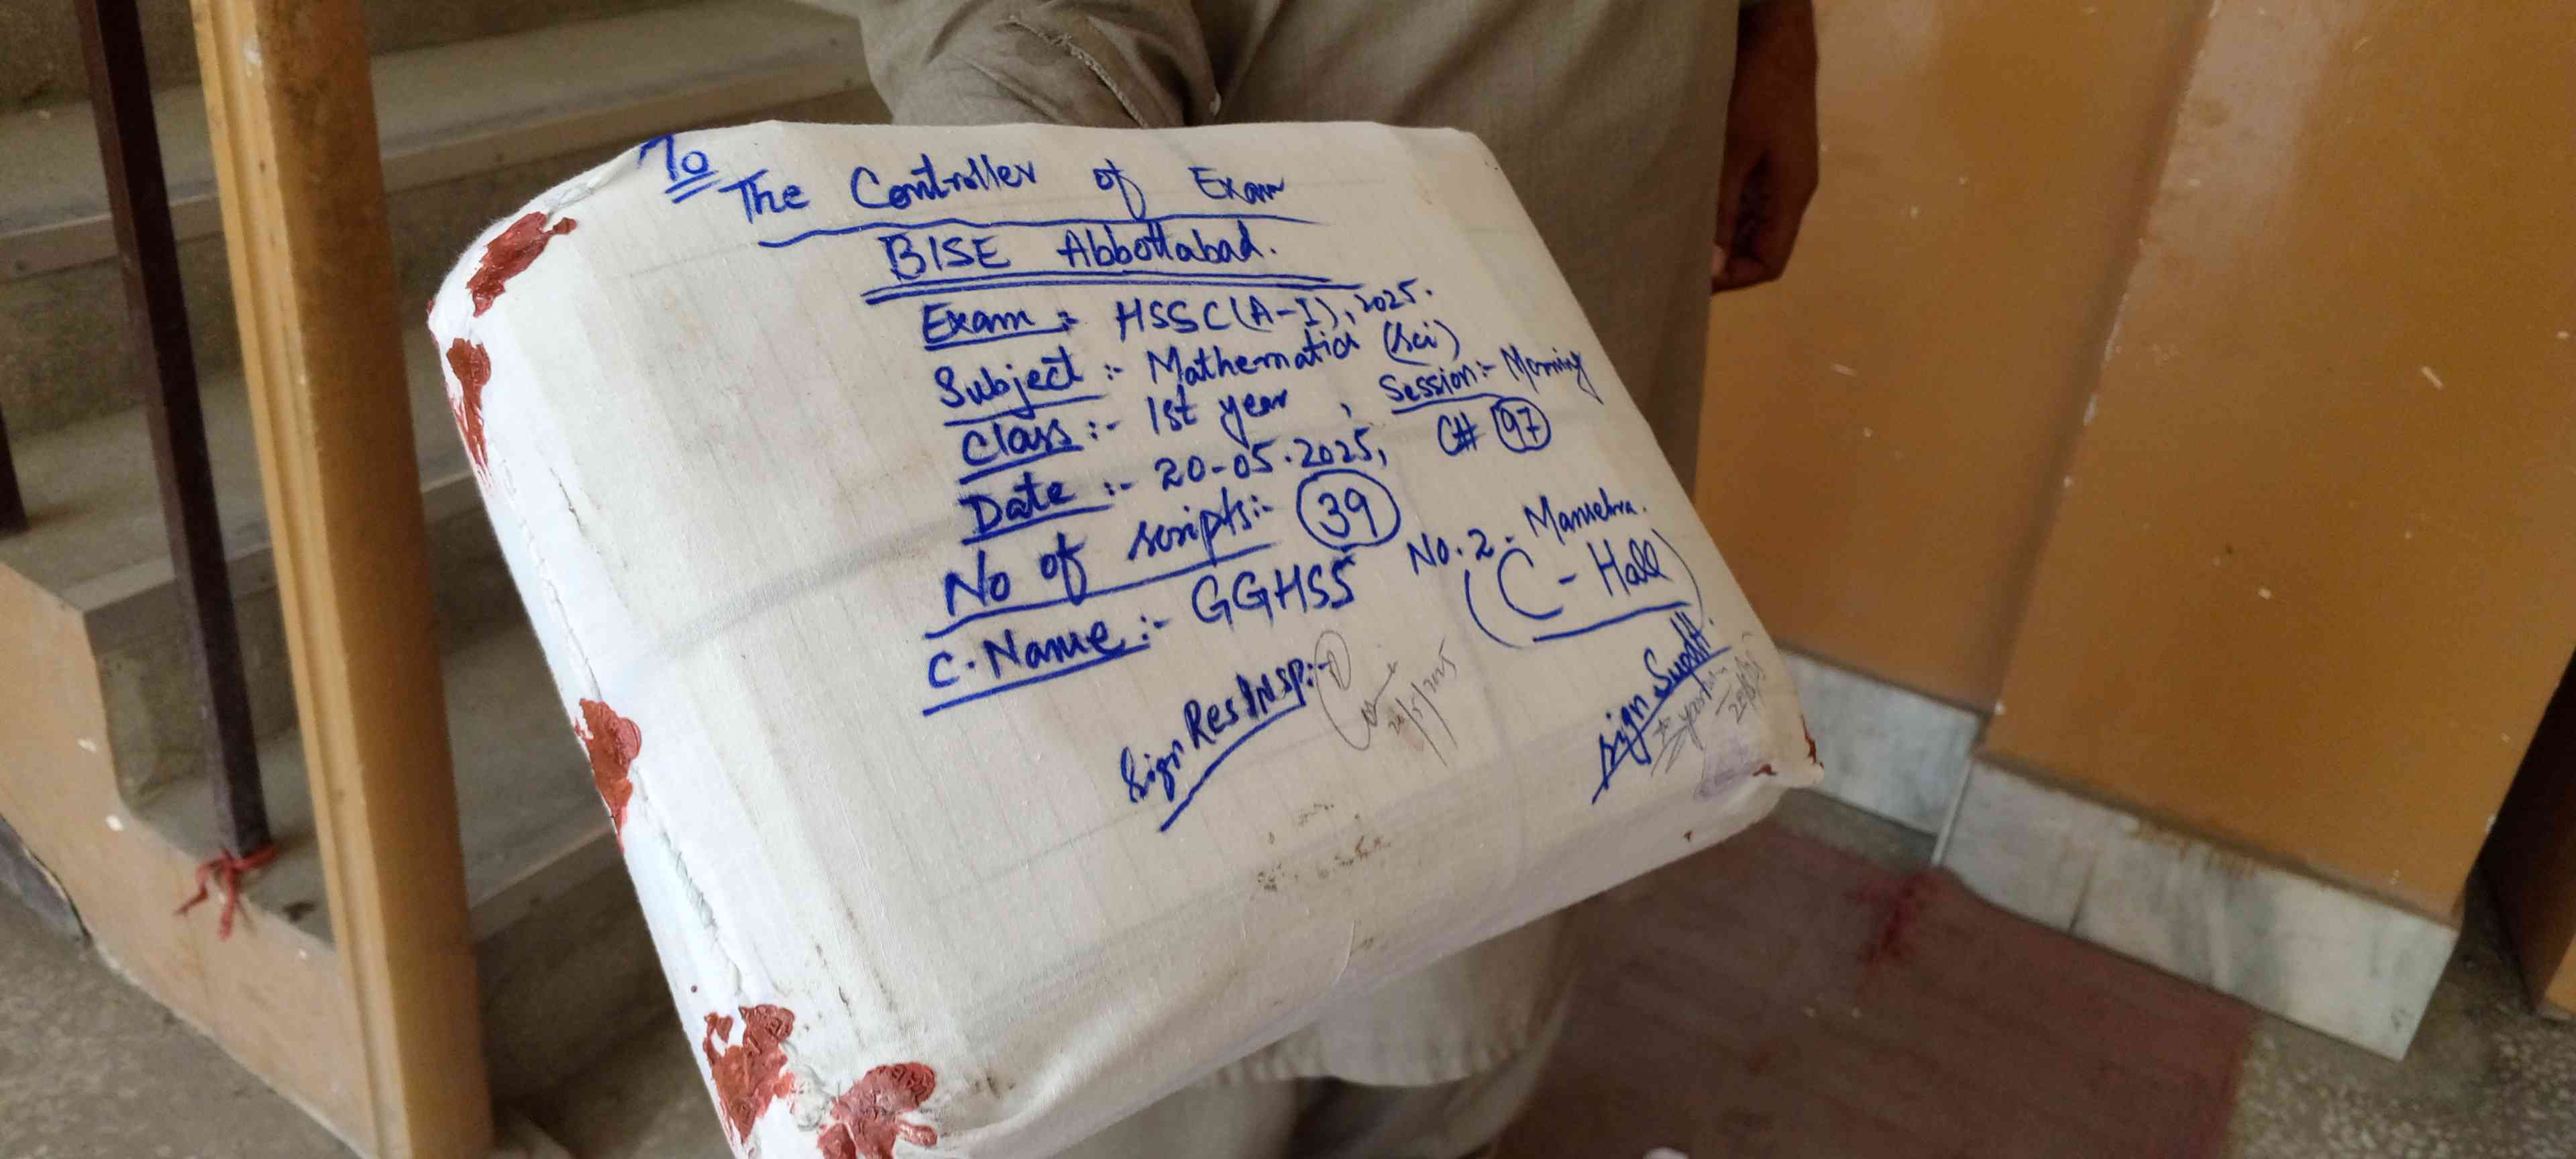 To
The Controller of Exam
BISE Abbottabad.
Exam :- HSSC(A-I), 2025.
Subject :- Mathematics (Sci)
Class :- 1st year , Session:- Morning
Date :- 20-05-2025, C# 97
No of scripts:- 39
C.Name :- GGHSS No.2 - Mansehra.
(C-Hall)
Sign Res/Insp:-
20/5/2025
Sign Supdt.